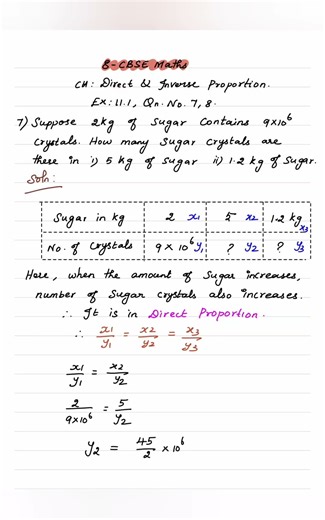 8-CBSE Maths
CH: Direct & Inverse Proportion.
Ex: 11.1, Qn. No. 7, 8.
7) Suppose 2kg of Sugar contains 9x10⁶
Crystals. How many Sugar Crystals are
there in i) 5 kg of Sugar ii) 1.2 kg of Sugar.
Soln:
Sugar in kg 2 x1 5 x2 1.2 kg x3
No. of Crystals 9 x 10⁶ y1 ? y2 ? y3
Here, when the amount of Sugar increases,
number of Sugar crystals also increases.
∴ It is in Direct Proportion.
∴ x1/y1 = x2/y2 = x3/y3
x1/y1 = x2/y2
2/9x10⁶ = 5/y2
y2 = 45/2 x 10⁶